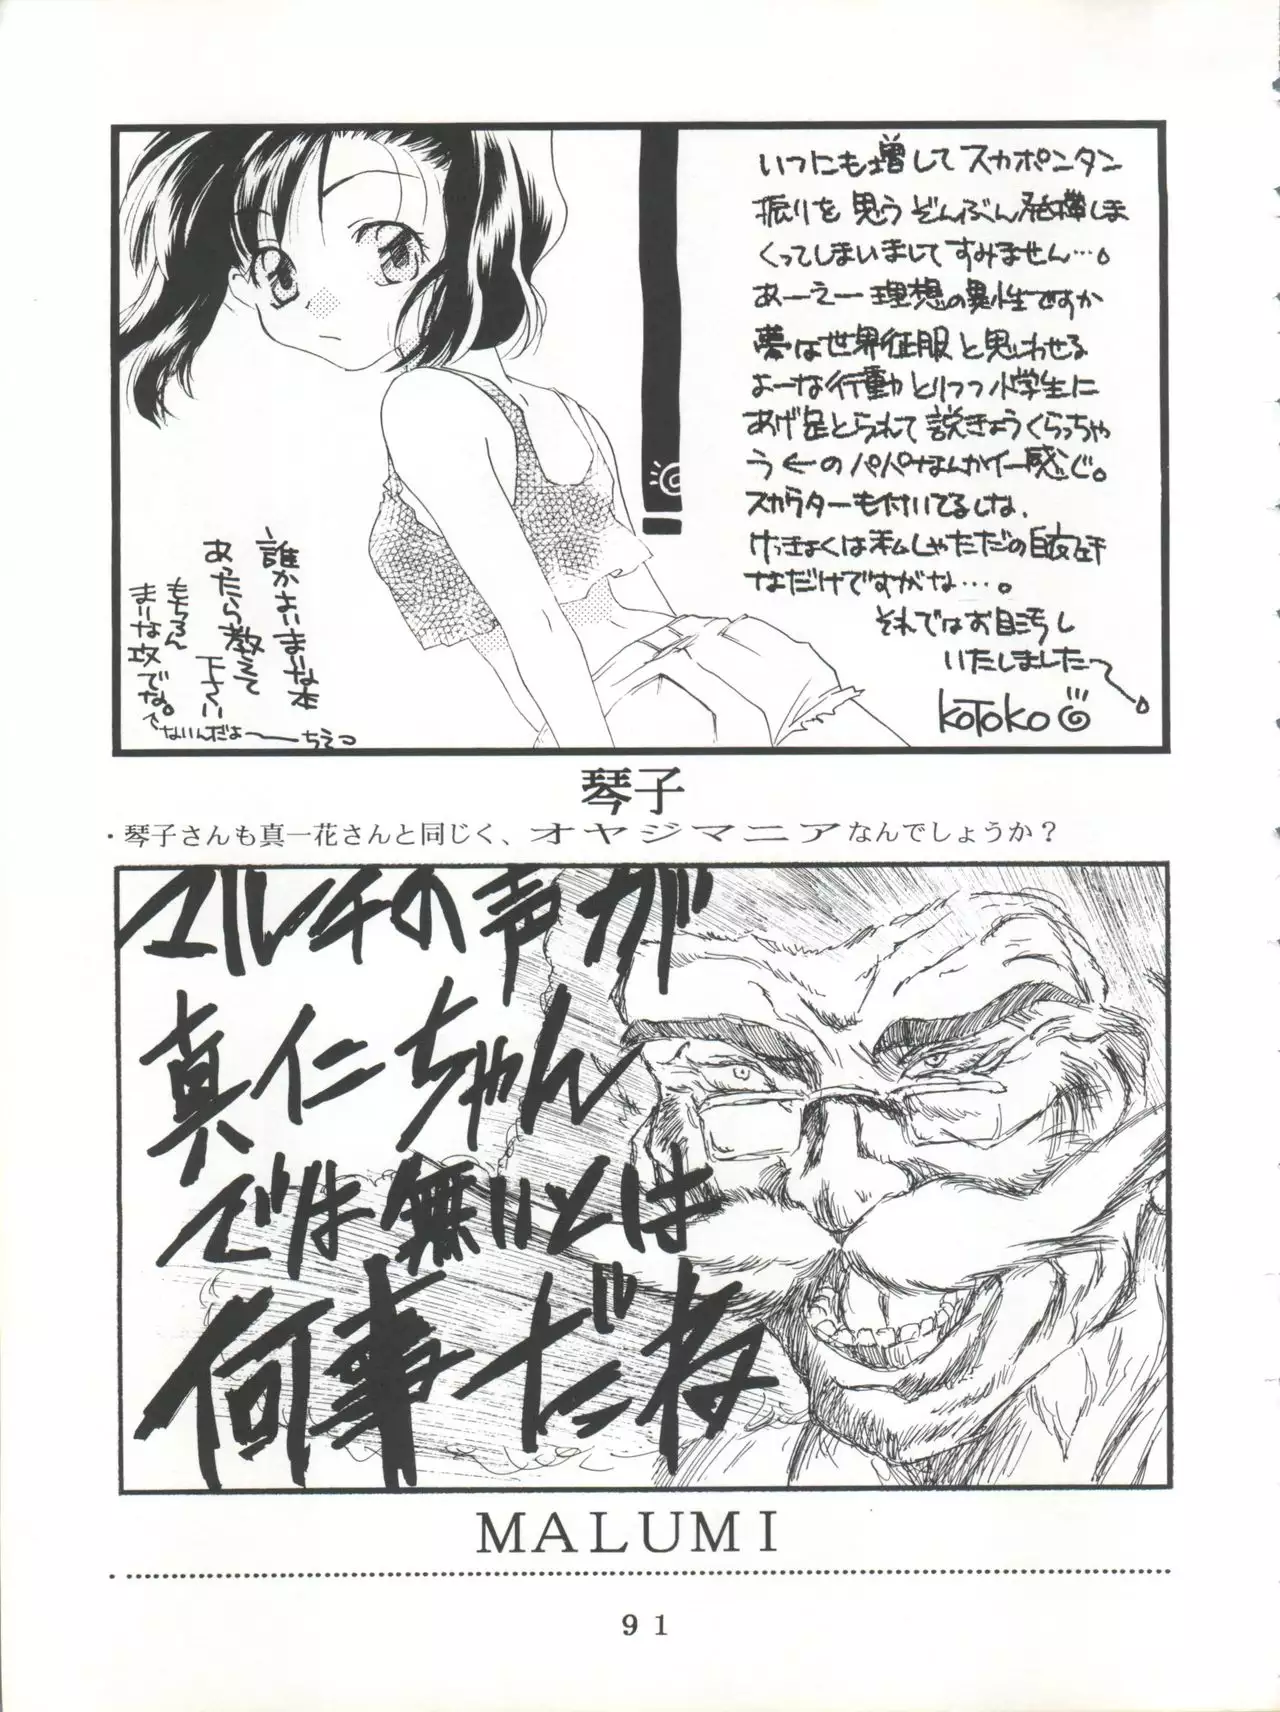 いつにも増してスカポンタン
振りを思うぞんぶん発揮しま
くってしまいましてすみません…。
あーえー理想の異性ですか
夢は世界征服と思わせる
よーな行動とりつつ小学生に
あげ足とられて説きょうくらっちゃ
う←のパパなんかイー感じ。
スカウターも付いてるしな、
けっきょくは私しゃただの
なだけですがな…。
それではお目汚し
いたしました〜
KOTOKO
誰かよいまーな本
あったら教えて
下さい
もちろん
まーな攻でな。
ないんだよ〜
ちえっ
琴子
・琴子さんも真一花さんと同じく、オヤジマニアなんでしょうか？
マルチの声が
真仁ちゃん
では無いとは
何事だね
MALUMI
91